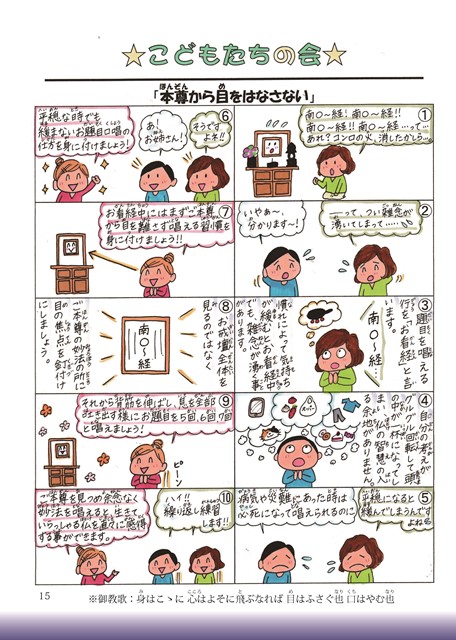 ★こどもたちの会★
「本尊から目をはなさない」
①
南〇〜経！ 南〇〜経！！
南〇〜経！ 南〇〜経…って…
あれ？コンロの火、消したかしら…
②
…って、つい雑念が
湧いてしまって……
いやぁ〜、
分かります〜！
③
題目を唱える
行を「お看経」と言
います。
南〇〜経…
慣れによって気持ち
が緩むとお看経中
で、雑念が湧く事
があります。
④
自分の考えが
グルグル回転して頭
の中が一杯になってし
まい、仏の智慧の入る
余地がありません。
スーパー
⑤
平穏になると
緩んでしまうんです
よねぇ
病気や災難にあった時は
必死になって唱えられるのに
⑥
そうです
よネ！！
あ！
お姉さん！
平穏な時でも
緩まないお題目口唱の
仕方を身に付けましょう！
⑦
お看経中にはまずご本尊
から目を離さず唱える習慣を
身に付けましょう！！
⑧
お戒壇全体を
見るのではなく
南〇〜経
ご本尊の妙法の所に
目の焦点を釘付け
にしましょう。
⑨
それから背筋を伸ばし、息を全部
吐き出す様にお題目を5回、6回、7回
と唱えましょう！
ピーン
⑩
ハイ！！
繰り返し練習
します！！
ご本尊を見つめ余念なく
妙法を唱えると、生きて
いらっしゃる仏を直々に感得
する事ができます。
15
※御教歌：身はこゝに 心はよそに 飛ぶなれば 目はふさぐ也 口はやむ也